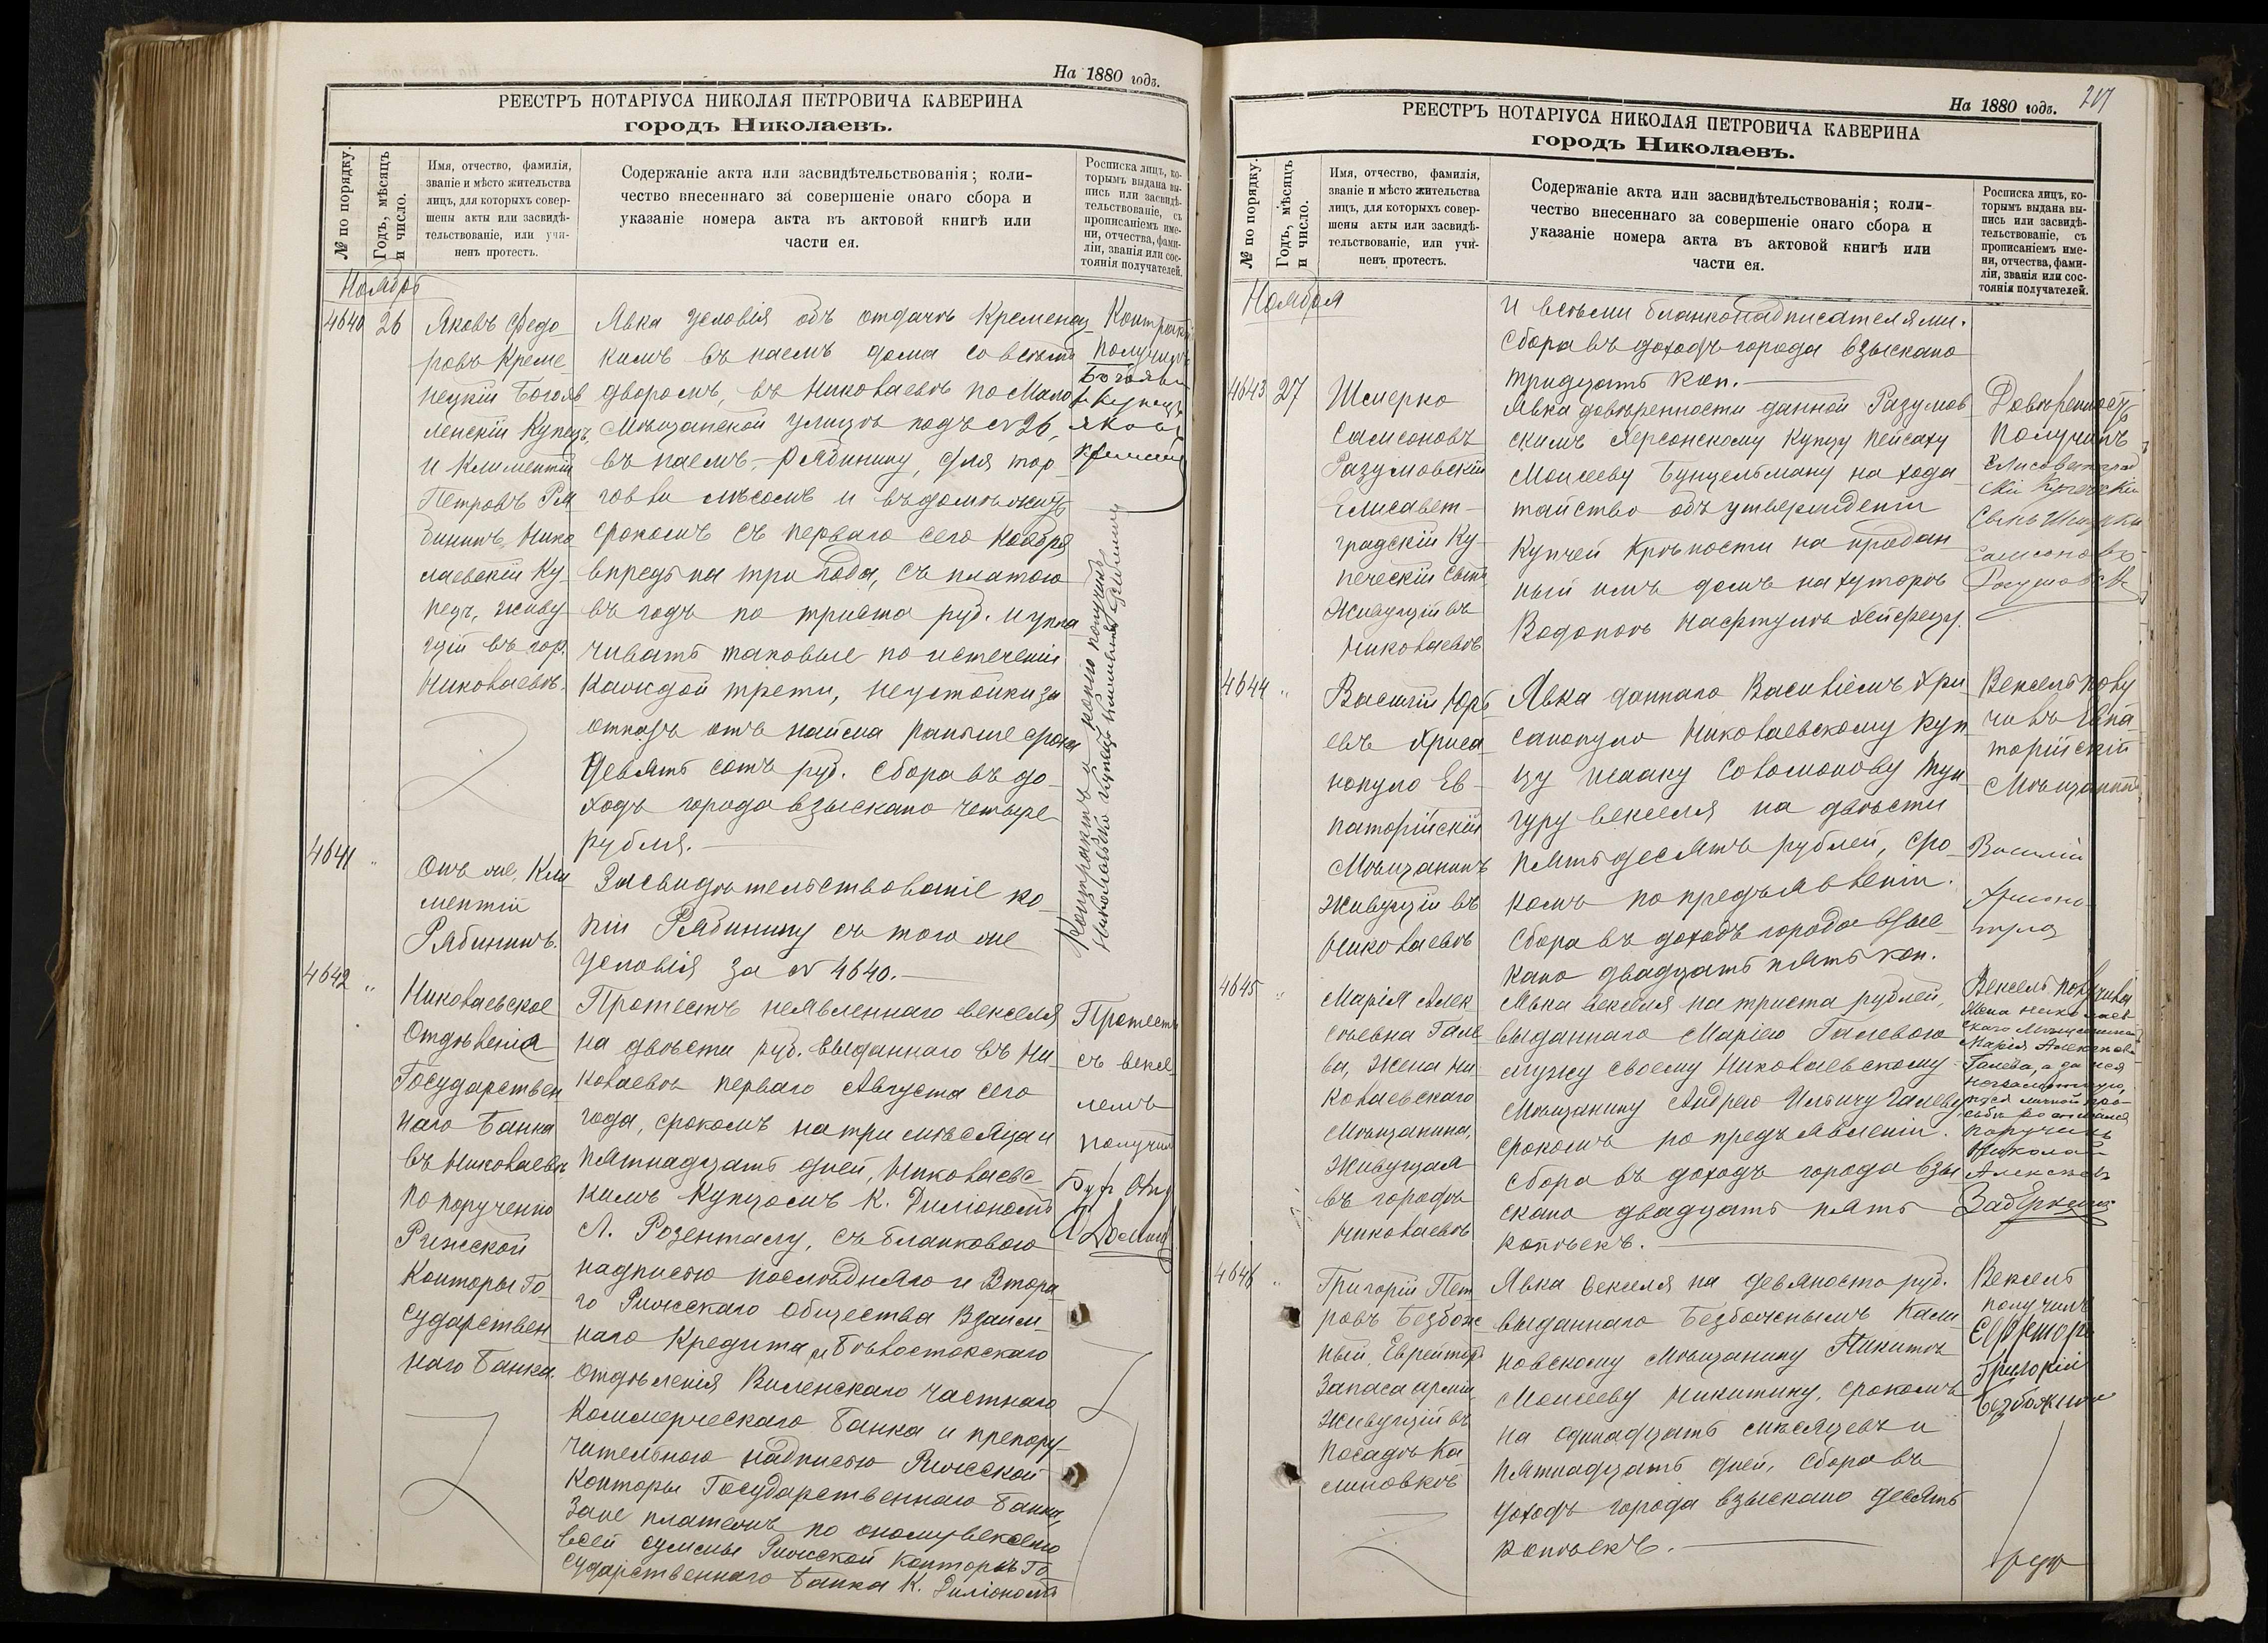 На 1880 годъ.
РЕЕСТРЪ НОТАРІУСА НИКОЛАЯ ПЕТРОВИЧА КАВЕРИНА
городъ Николаевъ.
№ по порядку.
Годъ, мѣсяцъ
и число.
Имя, отчество, фамилія,
званіе и мѣсто жительства
лицъ, для которыхъ совер-
шены акты или засвидѣ-
тельствованіе, или учи-
ненъ протестъ.
Содержаніе акта или засвидѣтельствованія; коли-
чество внесеннаго за совершеніе онаго сбора и
указаніе номера акта въ актовой книгѣ или
части ея.
Росписка лицъ, ко-
торымъ выдана вы-
пись или засвидѣ-
тельствованіе, съ
прописаніемъ име-
ни, отчества, фами-
ліи, званія или сос-
тоянія получателей.
Ноябрь
4640
26
Яковъ Федо-
ровъ Креме-
нецкій Богояв
ленскій Купецъ,
и Климентій
Петровъ Ря
бининъ, Нико
лаевскій Ку
пецъ, живу
щій въ гор.
Николаевѣ.
Явка условія объ отдачѣ Кременец
кимъ въ наемъ дома со всѣмъ
дворомъ, въ Николаевѣ по Мало
Мѣщанской улицѣ подъ № 26,
въ наемъ, Рябинину, для тор
говли мѣсомъ и въ домѣ жить
срокомъ съ перваго сего Ноября
впредь на три года, съ платою
въ годъ по триста руб. и упла
чивать таковые по истеченіи
каждой трети, неустойки за
отказъ отъ найма раньше срока
девять сотъ руб. Сбора въ до-
ходъ города взыскано четыре
рубля.
Контрактъ
получилъ
Богоявл
Купецъ
Яковъ
Контрактъ и копію получилъ
Николаевскій купецъ Климентій Рябининъ
4641
"
Онъ же, Кли
ментій
Рябининъ.
Засвидѣтельствованіе ко-
піи Рябинину съ того же
условія за № 4640.
4642
"
Николаевское
Отдѣленіе
Государствен
наго Банка
въ Николаевѣ
по порученію
Рижской
Конторы Го-
сударствен
наго Банка.
Протестъ неявленнаго векселя
на двѣсти руб. выданнаго въ Ни-
колаевѣ перваго Августа сего
года, срокомъ на три мѣсяца и
пятнадцать дней, Николаевс
кимъ Купцомъ К. Филіономъ
Л. Розенталу, съ бланковою
надписью послѣдняго и Втора-
го Рижскаго Общества Взаим-
наго Кредита и Бѣлостокскаго
Отдѣленія Виленскаго частнаго
Коммерческаго Банка и препору-
чительною надписью Рижской
Конторы Государственнаго Банка,
за не платежъ по оному векселю
всей суммы Рижской Конторѣ Го-
сударственнаго Банка К. Филіономъ
Протестъ
съ вексе
лемъ
получилъ
На 1880 годъ.
217
РЕЕСТРЪ НОТАРІУСА НИКОЛАЯ ПЕТРОВИЧА КАВЕРИНА
городъ Николаевъ.
№ по порядку.
Годъ, мѣсяцъ
и число.
Имя, отчество, фамилія,
званіе и мѣсто жительства
лицъ, для которыхъ совер-
шены акты или засвидѣ-
тельствованіе, или учи-
ненъ протестъ.
Содержаніе акта или засвидѣтельствованія; коли-
чество внесеннаго за совершеніе онаго сбора и
указаніе номера акта въ актовой книгѣ или
части ея.
Росписка лицъ, ко-
торымъ выдана вы-
пись или засвидѣ-
тельствованіе, съ
прописаніемъ име-
ни, отчества, фами-
ліи, званія или сос-
тоянія получателей.
Ноября
и всѣми бланконадписателями.
Сбора въ доходъ города взыскано
тридцать коп.
4643
27
Шмерко
Самсоновъ
Разумовскій
Елисавет-
градскій Ку-
печескій сынъ
живущій въ
Николаевѣ
Явка довѣренности данной Разумов
скимъ Херсонскому купцу Пейсаху
Моисееву Бунцельману на хода
тайство объ утвержденіи
купчей крѣпости на продан
ный имъ домъ на хуторѣ
Водопоѣ Нафтулѣ Хейфецу.
Довѣренность
получилъ
Елисаветград
скій Купеческій
сынъ Шмерко
Самсоновъ
4644
"
Василій Юрь
евъ Хриса
нопуло Ев-
паторійскій
Мѣщанинъ
живущій въ
Николаевѣ
Явка даннаго Василіемъ Хри
санопуло Николаевскому куп
цу Исааку Соломонову Тун
гуру векселя на двѣсти
пятьдесятъ рублей, сро
комъ по предъявленіи.
Сбора въ доходъ города взыс-
кано двадцать пять коп.
Вексель полу
чилъ Евпа
торійскій
Мѣщанинъ
Василій
4645
"
Марія Алек
сѣевна Гале
ва, жена Ни
колаевскаго
Мѣщанина,
живущая
въ городѣ
Николаевѣ
Явка векселя на триста рублей,
выданнаго Маріею Галевою
мужу своему Николаевскому
Мѣщанину Андрею Ильичу Галеву
срокомъ по предъявленіи.
Сбора въ доходъ города взы
скано двадцать пять
копѣекъ.
Вексель получила
жена Николаев
скаго Мѣщанина
Марія Алексѣевна
Галева, а за нея
неграмотную,
по ея личной прось-
бѣ росписался
Николай
Алексѣевъ
4646
"
Григорій Пет
ровъ Безбож
ный, Ефрейторъ
Запаса арміи,
живущій въ
посадѣ Ка
линовкѣ
Явка векселя на девяносто руб.
выданнаго Безбожнымъ Кали
новскому мѣщанину Никитѣ
Моисееву Никитину, срокомъ
на одинадцать мѣсяцевъ и
пятнадцать дней, Сбора въ
доходъ города взыскано десять
копѣекъ.
Вексель
получилъ
Ефреторъ
Григорій
Безбожный